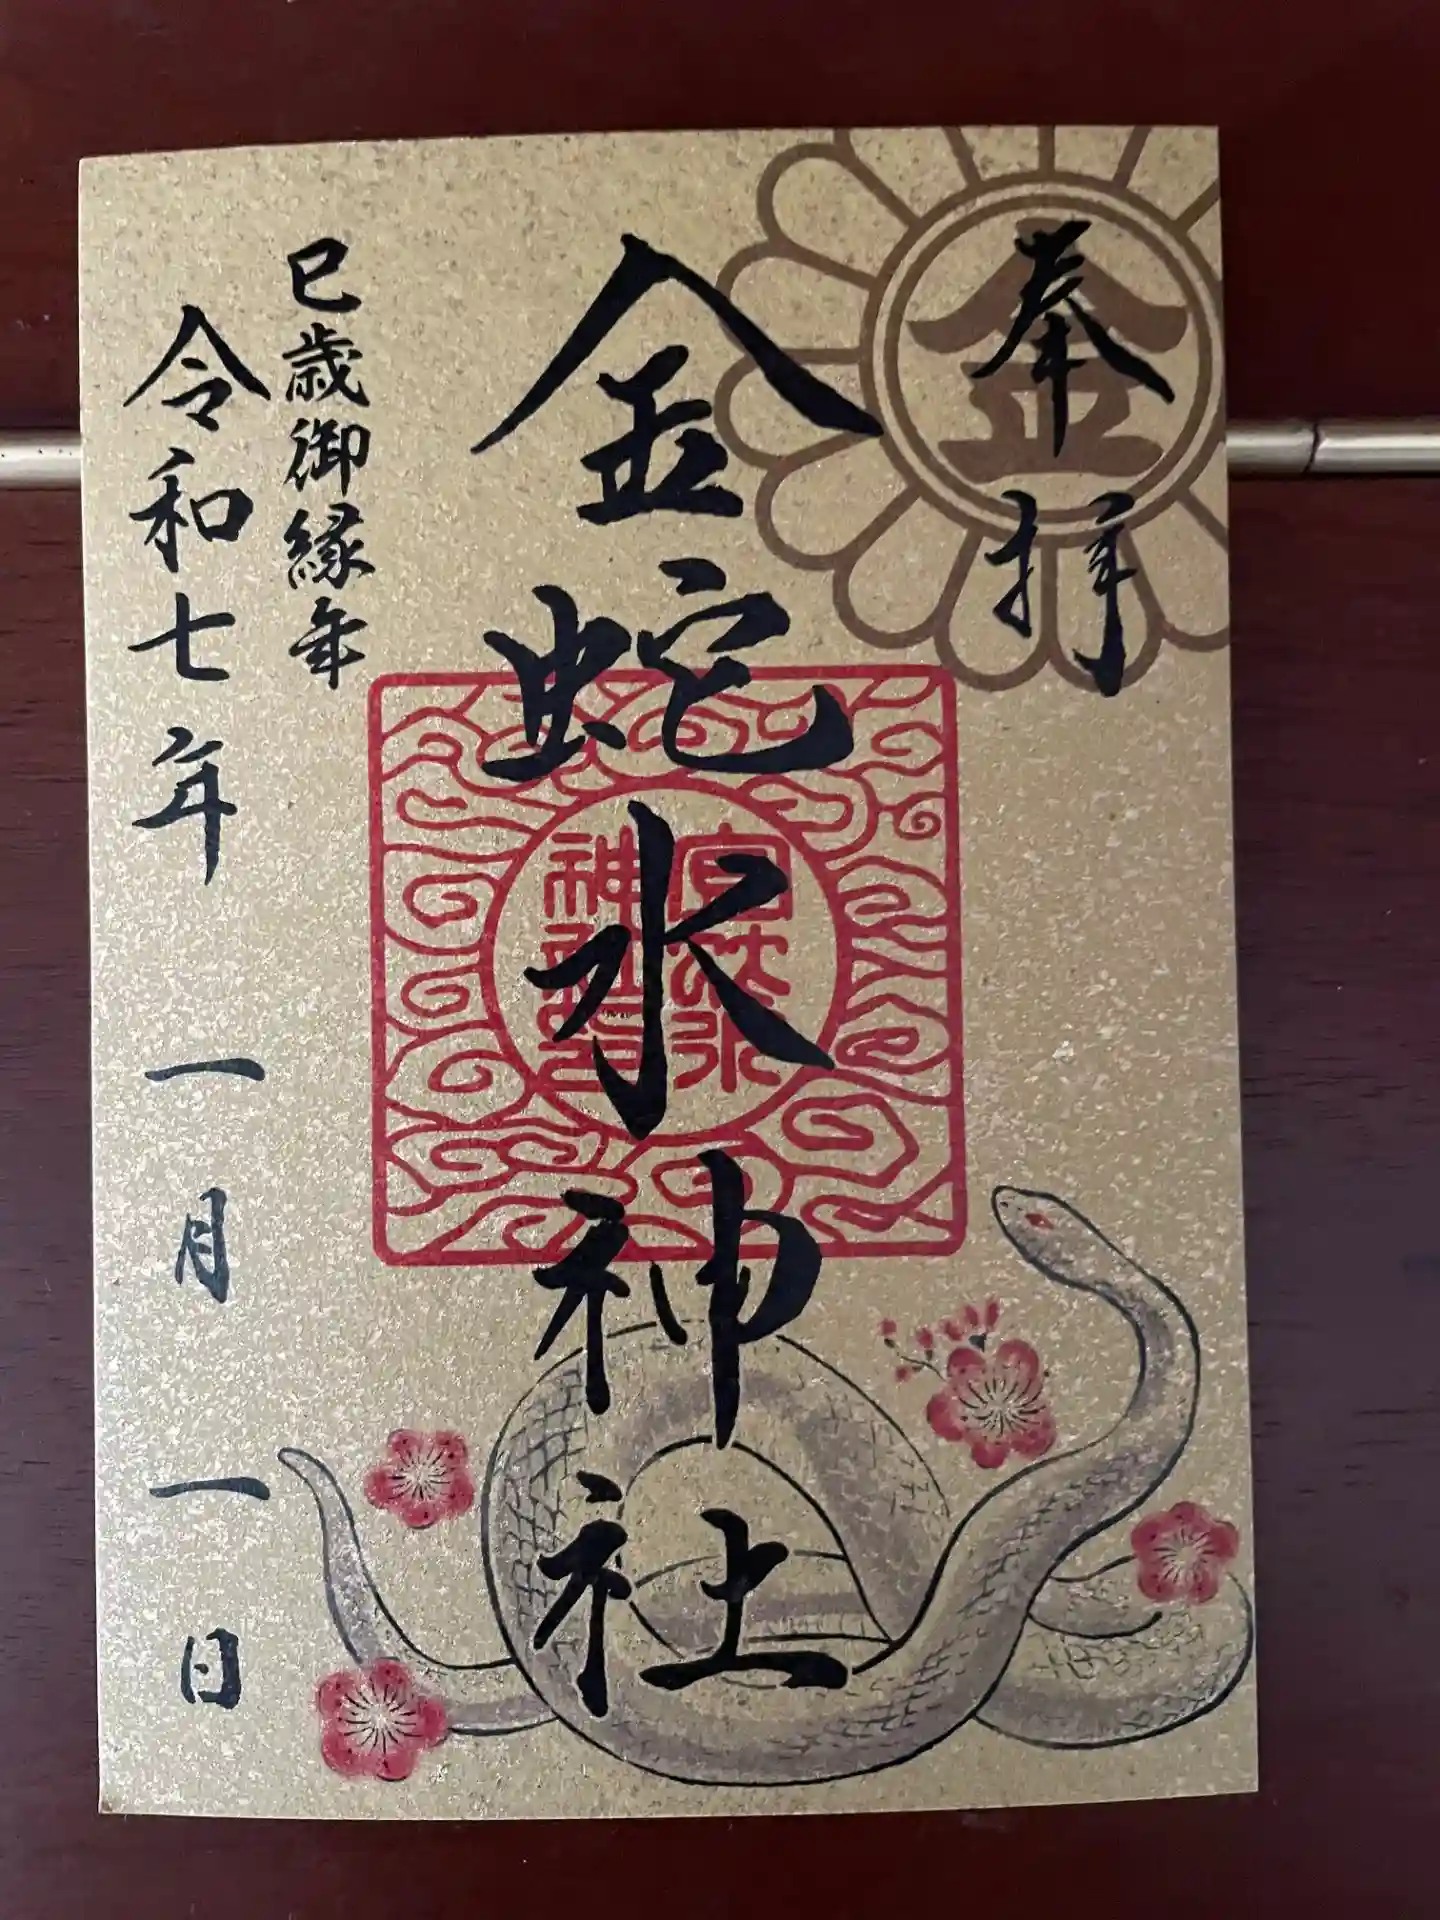 奉拝
金
金蛇水神社
宮蛇水
神社
巳歳御縁年
令和七年 一月 一日